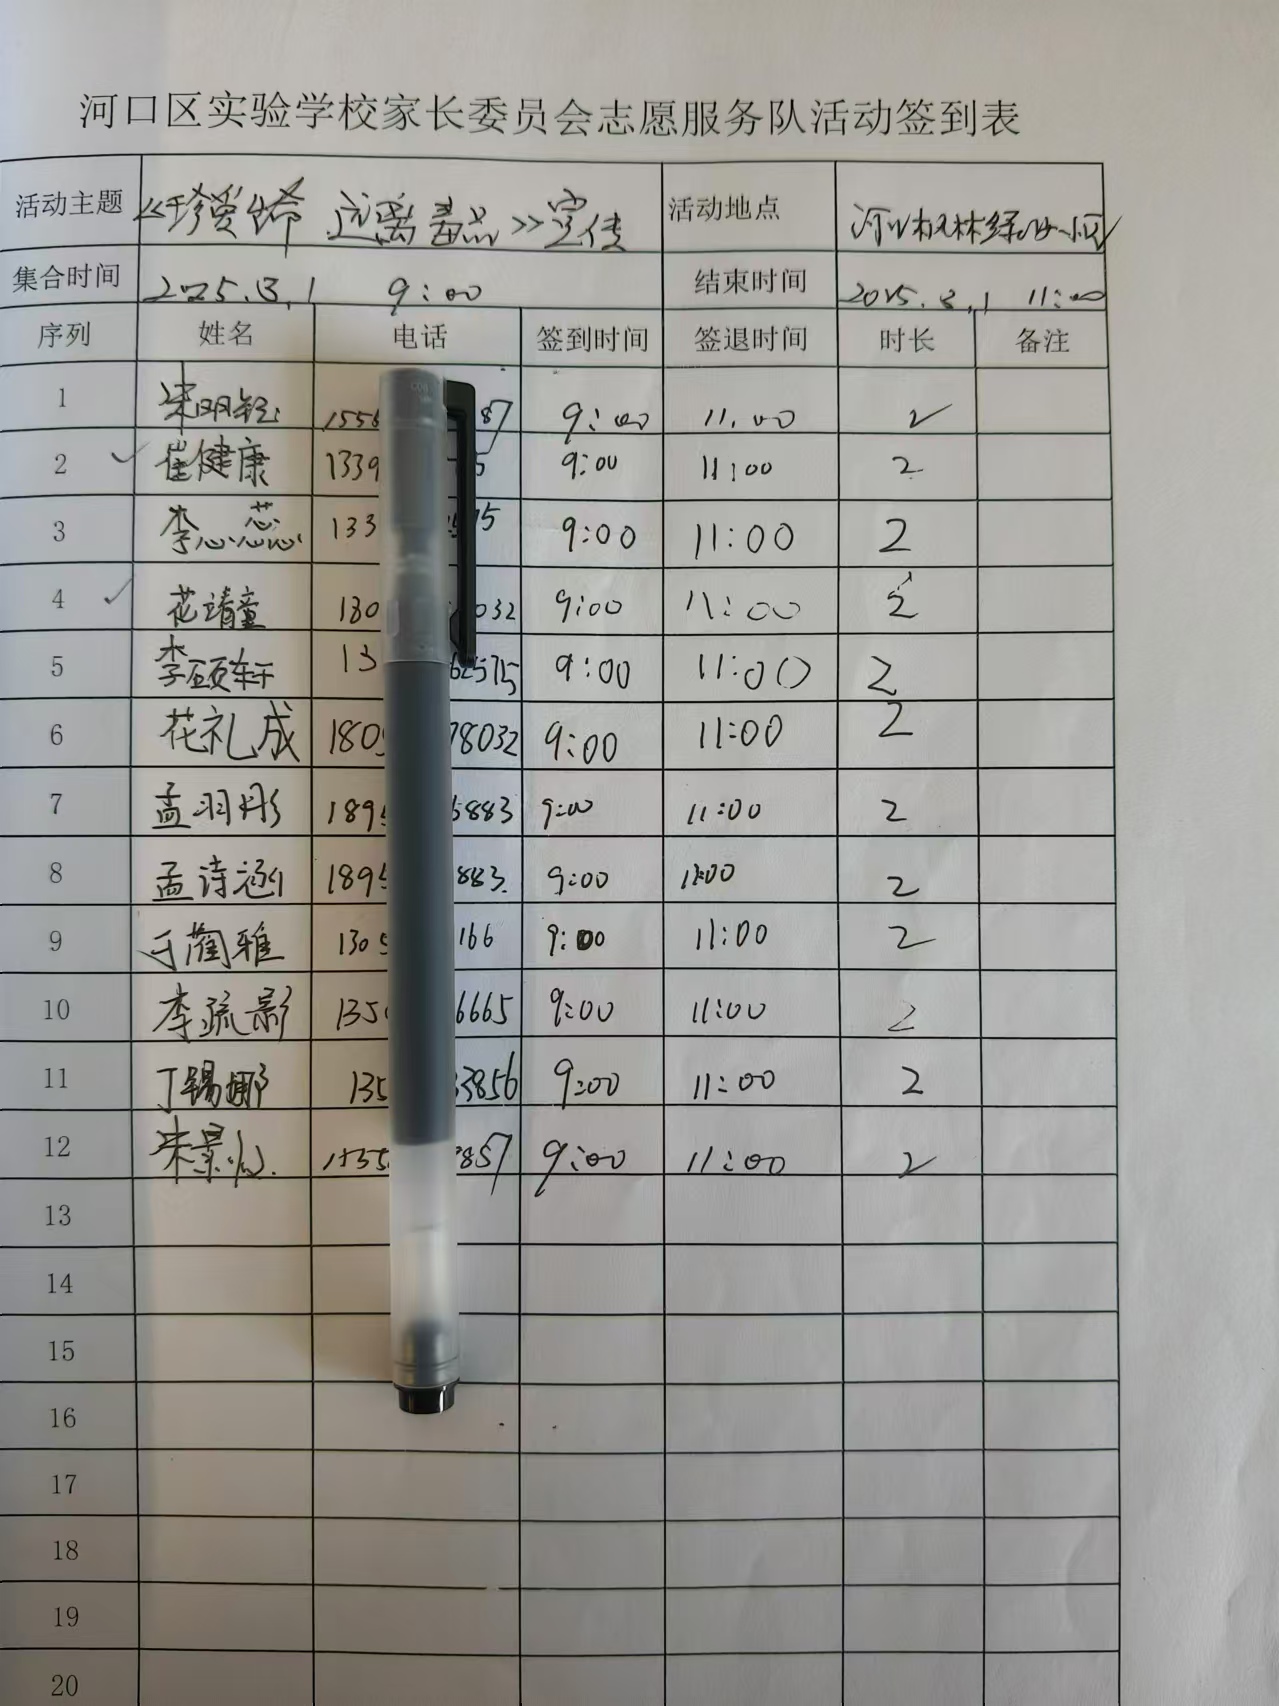 河口区实验学校家长委员会志愿服务队活动签到表
活动主题 《珍爱生命 远离毒品》宣传 活动地点
集合时间 2025.3.1 9:00 结束时间 2025.3.1 11:00
序列 姓名 电话 签到时间 签退时间 时长 备注
1 1556 87 9:00 11:00 2
2 崔健康 1339 5 9:00 11:00 2
3 李思蕊 133 575 9:00 11:00 2
4 花靖童 180 032 9:00 11:00 2
5 李硕轩 13 62575 9:00 11:00 2
6 花礼成 180 78032 9:00 11:00 2
7 孟羽彤 189 5883 9:00 11:00 2
8 孟诗涵 1895 883 9:00 11:00 2
9 于蔺雅 130 166 9:00 11:00 2
10 李疏影 135 6665 9:00 11:00 2
11 丁锡娜 135 33856 9:00 11:00 2
12 1555 857 9:00 11:00 2
13
14
15
16
17
18
19
20